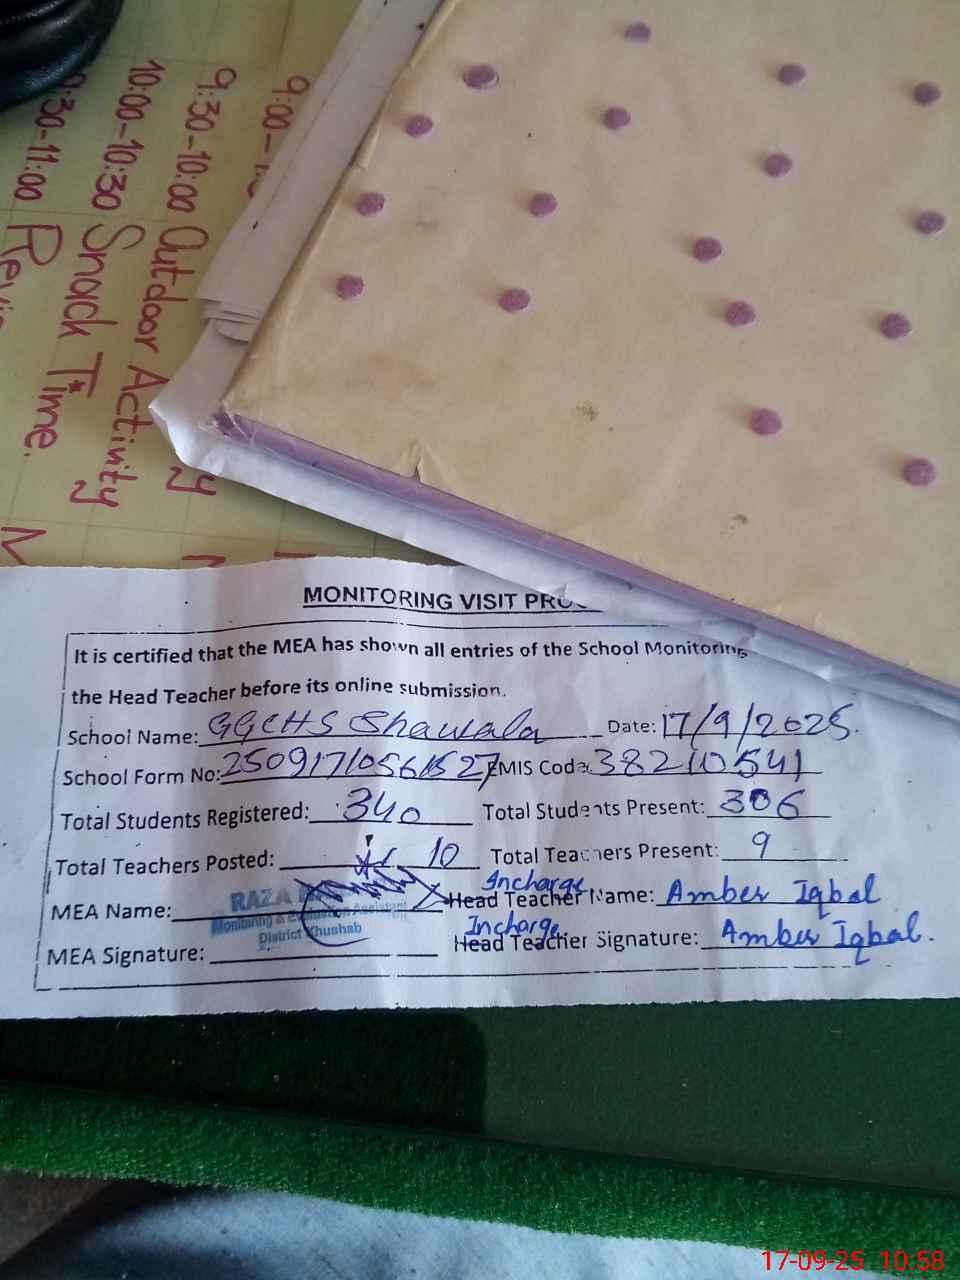 9:00-
9:30-10:00 Outdoor Activity
10:00-10:30 Snack Time.
9:30-11:00
MONITORING VISIT
It is certified that the MEA has shown all entries of the School Monitoring
the Head Teacher before its online submission.
School Name: GGCHS Shawala Date: 17/9/2025.
School Form No: EMIS Code: 38210541
Total Students Registered: 340 Total Students Present: 306
Total Teachers Posted: 10 Total Teachers Present: 9
Incharge
MEA Name: RAZA Head Teacher Name: Amber Iqbal
Monitoring & Evaluation Assistant
District Khushab
Incharge
MEA Signature: Head Teacher Signature: Amber Iqbal.
17-09-25 10:58